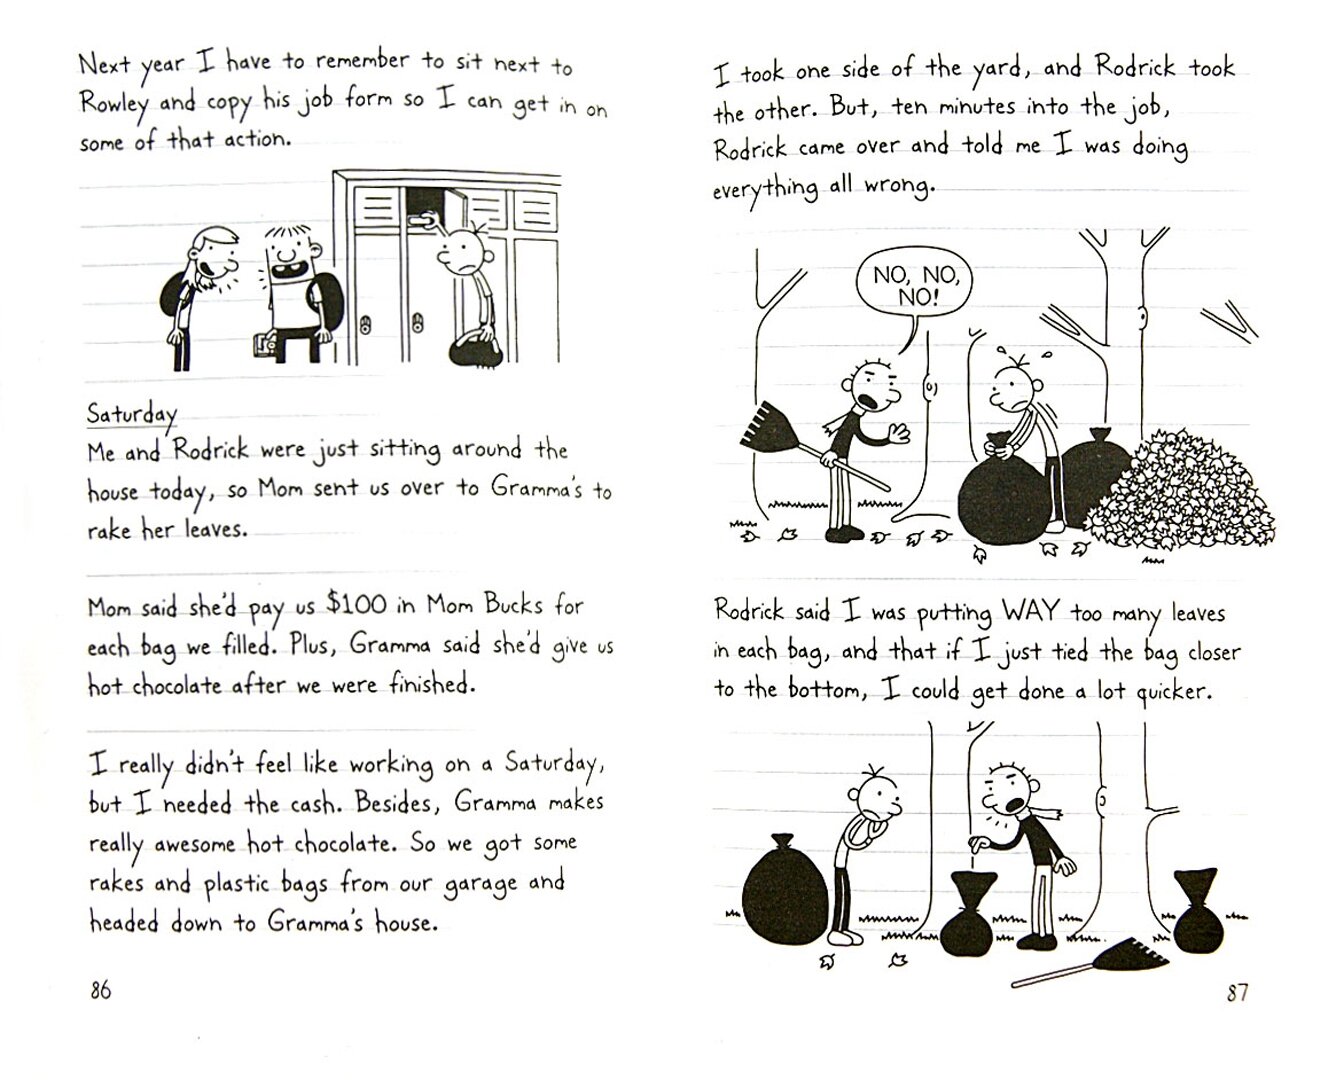 Next year I have to remember to sit next to
Rowley and copy his job form so I can get in on
some of that action.
Saturday
Me and Rodrick were just sitting around the
house today, so Mom sent us over to Gramma's to
rake her leaves.
Mom said she'd pay us $100 in Mom Bucks for
each bag we filled. Plus, Gramma said she'd give us
hot chocolate after we were finished.
I really didn't feel like working on a Saturday,
but I needed the cash. Besides, Gramma makes
really awesome hot chocolate. So we got some
rakes and plastic bags from our garage and
headed down to Gramma's house.
86
I took one side of the yard, and Rodrick took
the other. But, ten minutes into the job,
Rodrick came over and told me I was doing
everything all wrong.
NO, NO,
NO!
Rodrick said I was putting WAY too many leaves
in each bag, and that if I just tied the bag closer
to the bottom, I could get done a lot quicker.
87